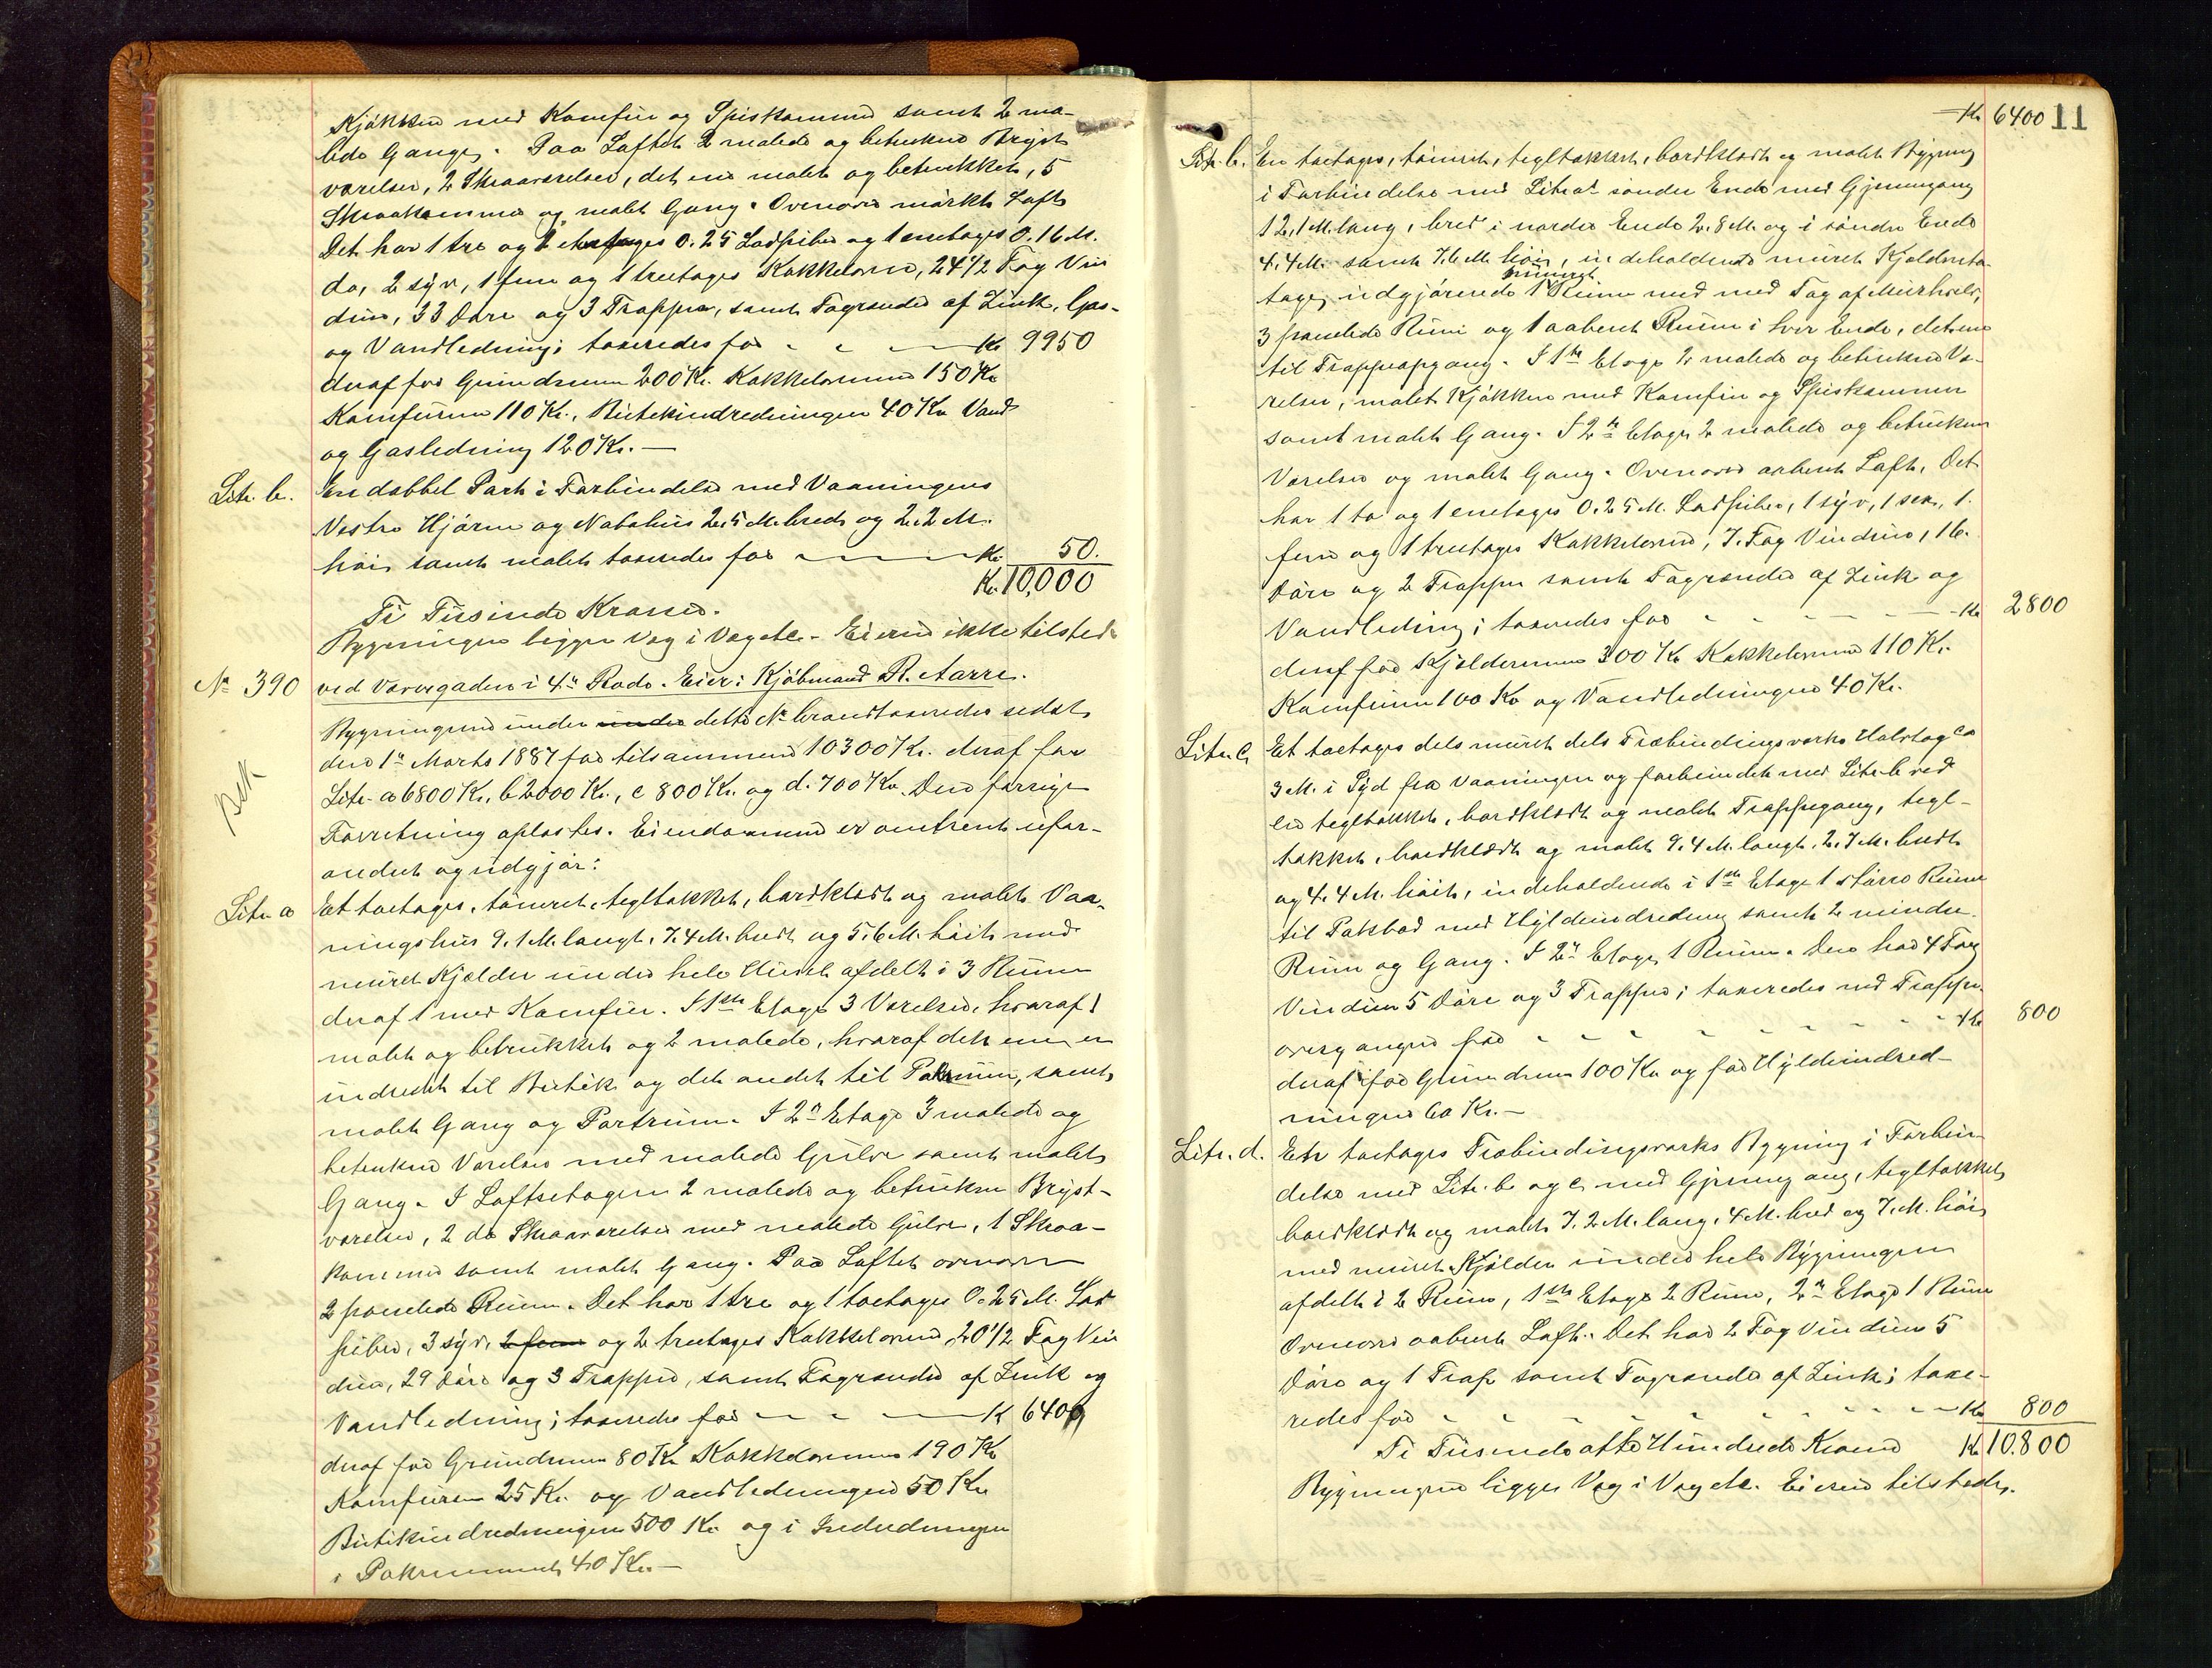 Kjøkken med Komfur og Spiskammer samt 2 ma-
lede Gange. Paa Loftet 2 malede og betrukne Bryst
værelser, 2 Skraaværelser, det ene malet og betrukket, 5
Skraakammer og malet Gang. Ovenover mørkt Loft
Det har 1 tre og 2 etages 0.25 Ladpiber og 1 enetages 0.16 M.
do, 2 syv, 1 fem og 1 treetages Kakkelovne, 24 1/2 Fag Vin
duer, 33 Døre og 3 Trapper, samt Tagrender af Zink, Gas-
og Vandledning; taxeredes for - - - Kr. 9950
deraf for Grundmuren 200 Kr. Kakkelovnene 150 Kr
Komfuren 110 Kr., Butikindredningen 40 Kr Vand
og Gasledning 120 Kr. -
Litr. b. En dobbel Port i Forbindelse med Vaaningens
Vestre Hjørne og Nabohus 2.5 M. bred og 2.2 M.
høi samt malet taxeredes for - - - Kr. 50.
Kr. 10,000
Ti Tusinde Kroner.
Bygningen ligger Væg i Væg etc. - Eieren ikke tilstede
No 390 ved Torvegaden i 4de Rode. Eier: Kjøbmand R. Aarre.
Bygningerne under under dette No brandtaxeredes sidst
den 1ste Marts 1887 for tilsammen 10300 Kr. deraf for
Litr. a 6800 Kr., b 2000 Kr., c 800 Kr. og d. 700 Kr. Den forrige
Forretning oplæstes. Eiendommen er omtrent ufor-
andret og udgjør:
Litr. a Et toetages, tømret, tegltækket, bordklædt og malet Vaa-
ningshus 9.1 M. langt, 7.4 M. bredt og 5.6 M. høit med
muret Kjælder under hele Huset afdelt i 3 Rum
deraf 1 med Komfur. I 1ste Etage 3 Værelser, hvoraf 1
malet og betrukket og 2 malede, hvoraf det ene er
indredet til Butik og det andet til Pakrum, samt
malet Gang og Portrum. I 2den Etage 3 malede og
betrukne Værelser med malede Gulve samt malet
Gang. I Loftsetagen 2 malede og betrukne Bryst-
værelser, 2 do Skraaværelser med malede Gulve, 1 Skraa-
kammer samt malet Gang. Paa Loftet ovenover
2 panelede Rum. Det har 1 tre og 1 toetages 0.25 M. Lad
piber, 3 syv, 2 fem og 2 treetages Kakkelovne, 20 1/2 Fag Vin
duer, 29 Døre og 3 Trapper, samt Tagrender af Zink og
Vandledning; taxeredes for - - - Kr 6400
deraf for Grundmuren 80 Kr Kakkelovnene 190 Kr
Komfuren 25 Kr. og Vandledningen 50 Kr
Butikindredningen 500 Kr. og i Indredningen
i Pakrummet 40 Kr. -
Kr 6400 11
Litr. b. En toetages, tømret, tegltækket, bordklædt og malet Bygning
i Forbindelse med Litr. a's søndre Ende med Gjennemgang
12,1 M. lang, bred i nordre Ende 2.8 M. og i søndre Ende
4.4 M. samt 7.6 M. høi, indeholdende muret Kjældereta-
ge, udgjørende 1 Rum med med Tag af Murhvelv,
3 panelede Rum og 1 aabent Rum i hver Ende, det ene
til Trappeopgang. I 1ste Etage 2 malede og betrukne Væ-
relser, malet Kjøkken med Komfur og Spiskammer
samt malet Gang. I 2den Etage 2 malede og betrukne
Værelser og malet Gang. Ovenover aabent Loft. Det
har 1 to og 1 enetages 0.25 M. Ladpiber, 1 syv, 1 sex, 1
fem og 1 treetages Kakkelovne, 7 Fag Vinduer, 16
Døre og 2 Trapper samt Tagrender af Zink og
Vandledning; taxeredes for - - - Kr 2800
deraf for Kjældermuren 300 Kr Kakkelovnene 110 Kr.
Komfuren 100 Kr og Vandledningen 40 Kr.
Litr. c Et toetages dels muret dels Træbindingsværks Halvtag ca
3 M. i Syd fra Vaaningen og forbundet med Litr. b ved
en tegltækket, bordklædt og malet Trappegang, tegl-
tækket, bordklædt og malet 9.4 M. langt, 2.7 M. bredt
og 4.4 M. høit, indeholdende i 1ste Etage 1 større Rum
til Pakbod med Hyldeindredning samt 2 mindre
Rum og Gang. I 2den Etage 1 Rum. Den har 4 Fag
Vinduer 5 Døre og 3 Trapper; taxeredes med Trappe-
overgangen for - - - Kr 800
deraf for Grundmuren 100 Kr og for Hyldeindred-
ningen 60 Kr. -
Litr. d. En toetages Træbindingsværks Bygning i Forbin-
delse med Litr. b og c med Gjennemgang, tegltækket
bordklædt og malet 7.2 M. lang, 4 M. bred og 7. M. høi
med muret Kjælder under hele Bygningen
afdelt i 2 Rum, 1ste Etage 2 Rum, 2den Etage 1 Rum
Ovenover aabent Loft. Det har 2 Fag Vinduer 5
Døre og 1 Trap samt Tagrender af Zink; taxe-
redes for - - - Kr 800
Ti Tusinde otte Hundrede Kroner Kr 10.800
Bygningerne ligger Væg i Væg etc. Eieren tilstede.